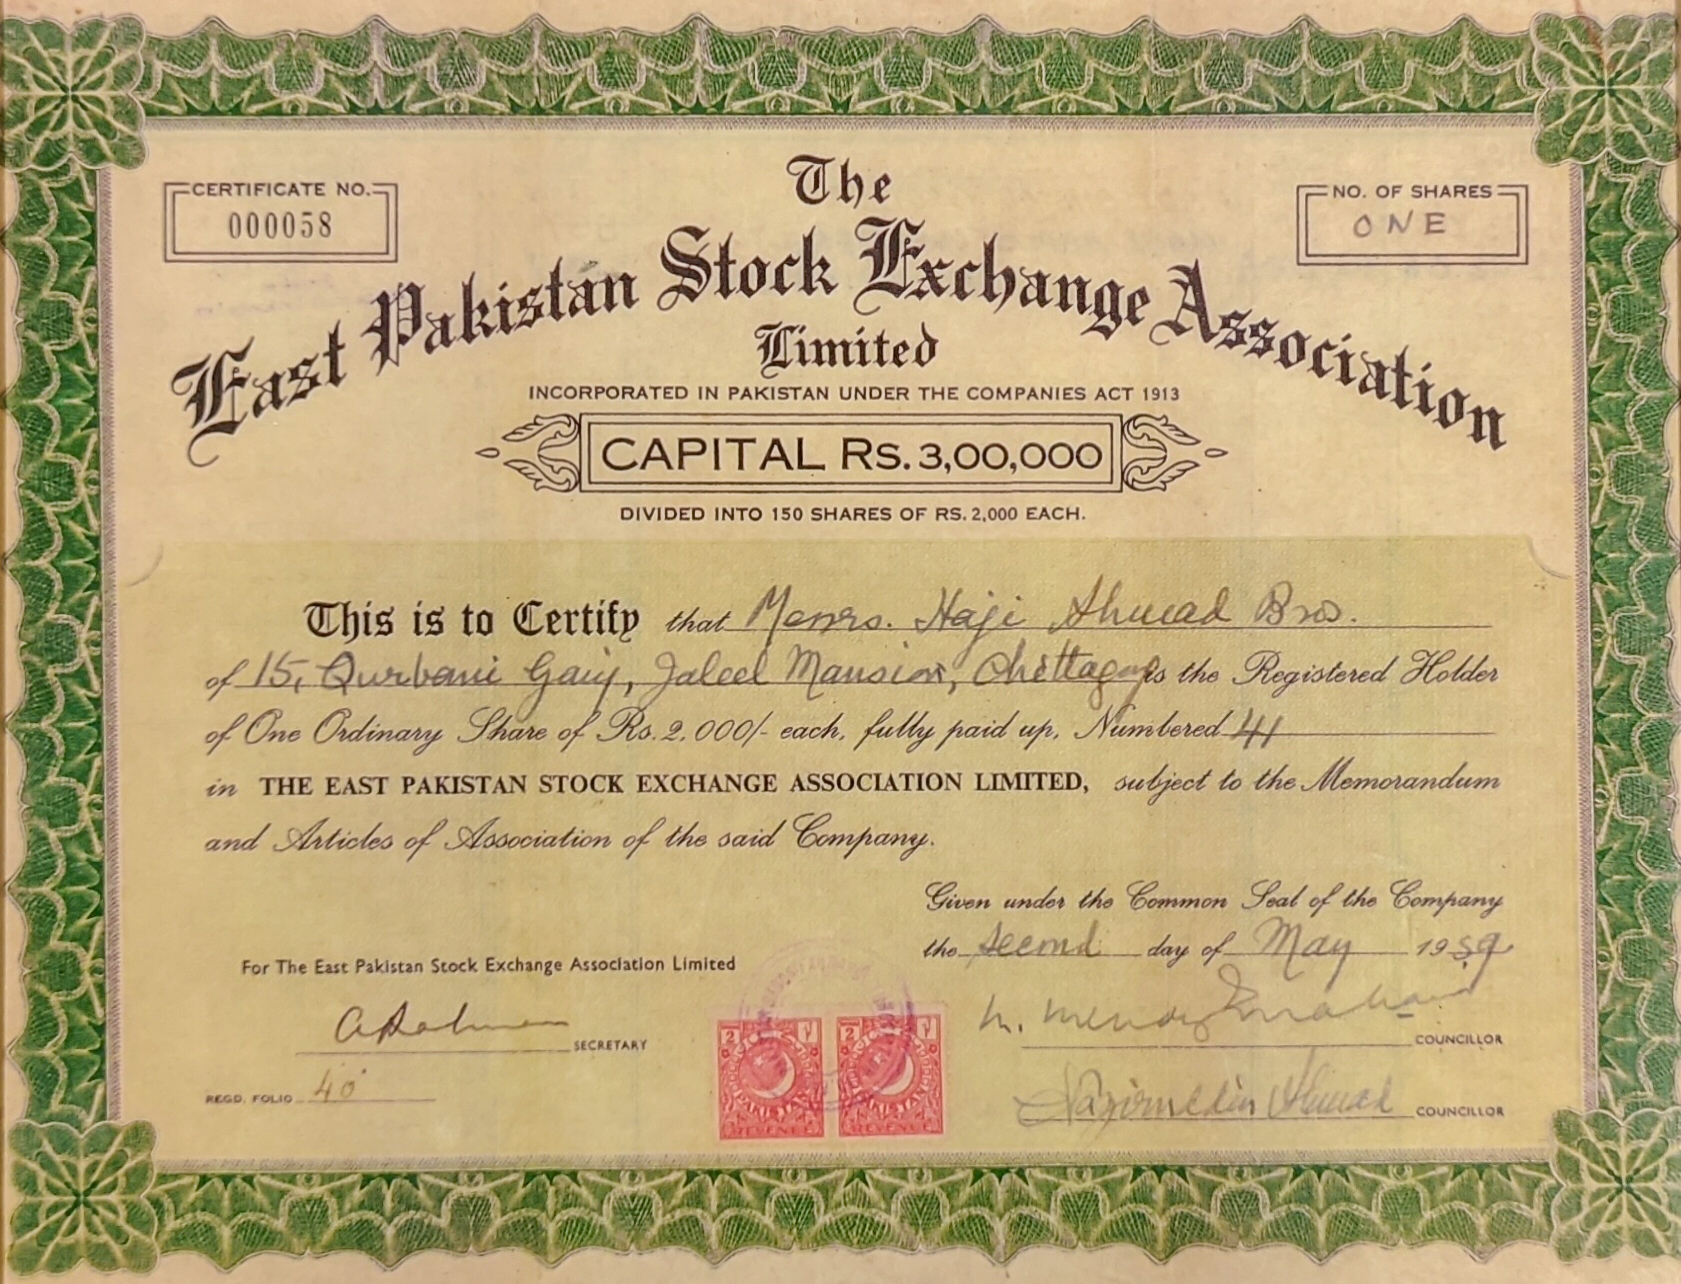 CERTIFICATE NO.
000058
NO. OF SHARES
ONE
The
East Pakistan Stock Exchange Association
Limited
INCORPORATED IN PAKISTAN UNDER THE COMPANIES ACT 1913
CAPITAL RS. 3,00,000
DIVIDED INTO 150 SHARES OF RS. 2,000 EACH.
This is to Certify that Messrs. Haji Ahmad Bros.
of 15, Qurbani Gunj, Jaleel Mansion, Chittagong is the Registered Holder
of One Ordinary Share of Rs. 2,000/- each, fully paid up, Numbered 41
in THE EAST PAKISTAN STOCK EXCHANGE ASSOCIATION LIMITED, subject to the Memorandum
and Articles of Association of the said Company.
Given under the Common Seal of the Company
the second day of May 1959
For The East Pakistan Stock Exchange Association Limited
SECRETARY
COUNCILLOR
REGD. FOLIO 40
Ahmad COUNCILLOR
2 2
PAKISTAN PAKISTAN
REVENUE REVENUE